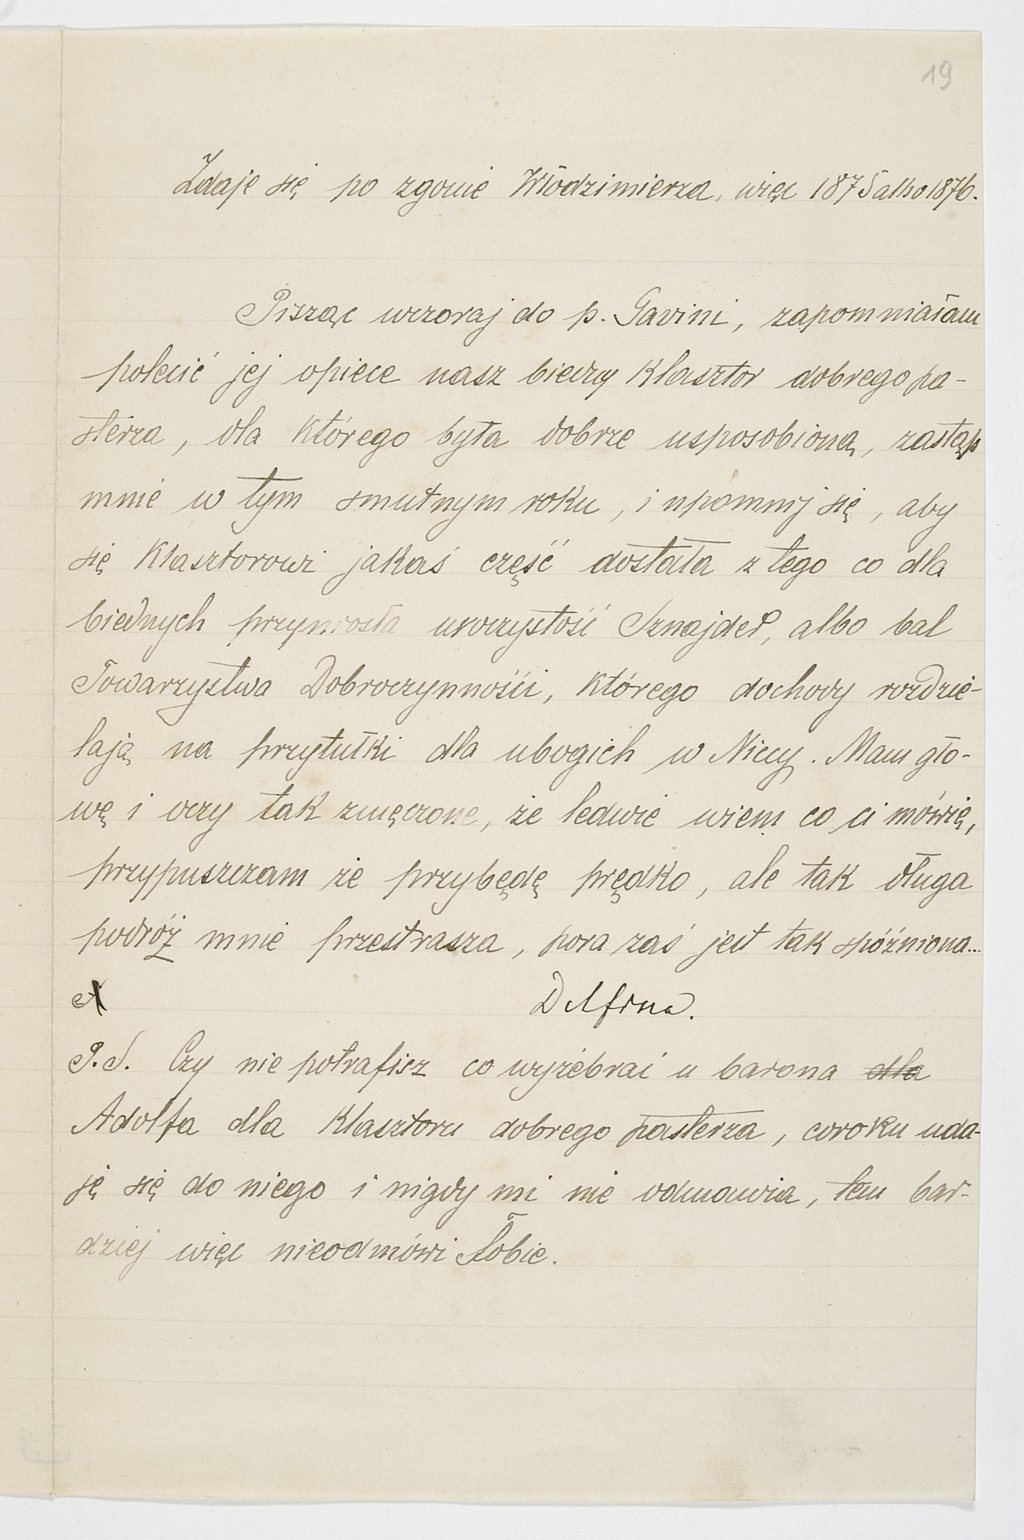 19
Zdaje się po zgonie Włodzimierza, więc 1875 albo 1876.
Pisząc wczoraj do p. Gavini, zapomniałam
polecić jej opiece nasz biedny Klasztor dobrego pa-
sterza, dla którego była dobrze usposobioną, zastąp
mnie w tym smutnym roku, i upomnij się, aby
się Klasztorowi jakaś część dostała z tego co dla
biednych przyniosła uroczystość Sznajder, albo bal
Towarzystwa Dobroczynności, którego dochody rozdzie-
lają na przytułki dla ubogich w Nicy. Mam gło-
wę i oczy tak zmęczone, że ledwie wiem co ci mówię,
przypuszczam że przybędę prędko, ale tak długa
podróż mnie przestrasza, pora zaś jest tak spóźniona...
Delfina.
P.S. Czy nie potrafisz co wyżebrać u barona dla
Adolfa dla Klasztoru dobrego pasterza, coroku uda-
ję się do niego i nigdy mi nie odmawia, tem bar-
dziej więc nieodmówi Tobie.